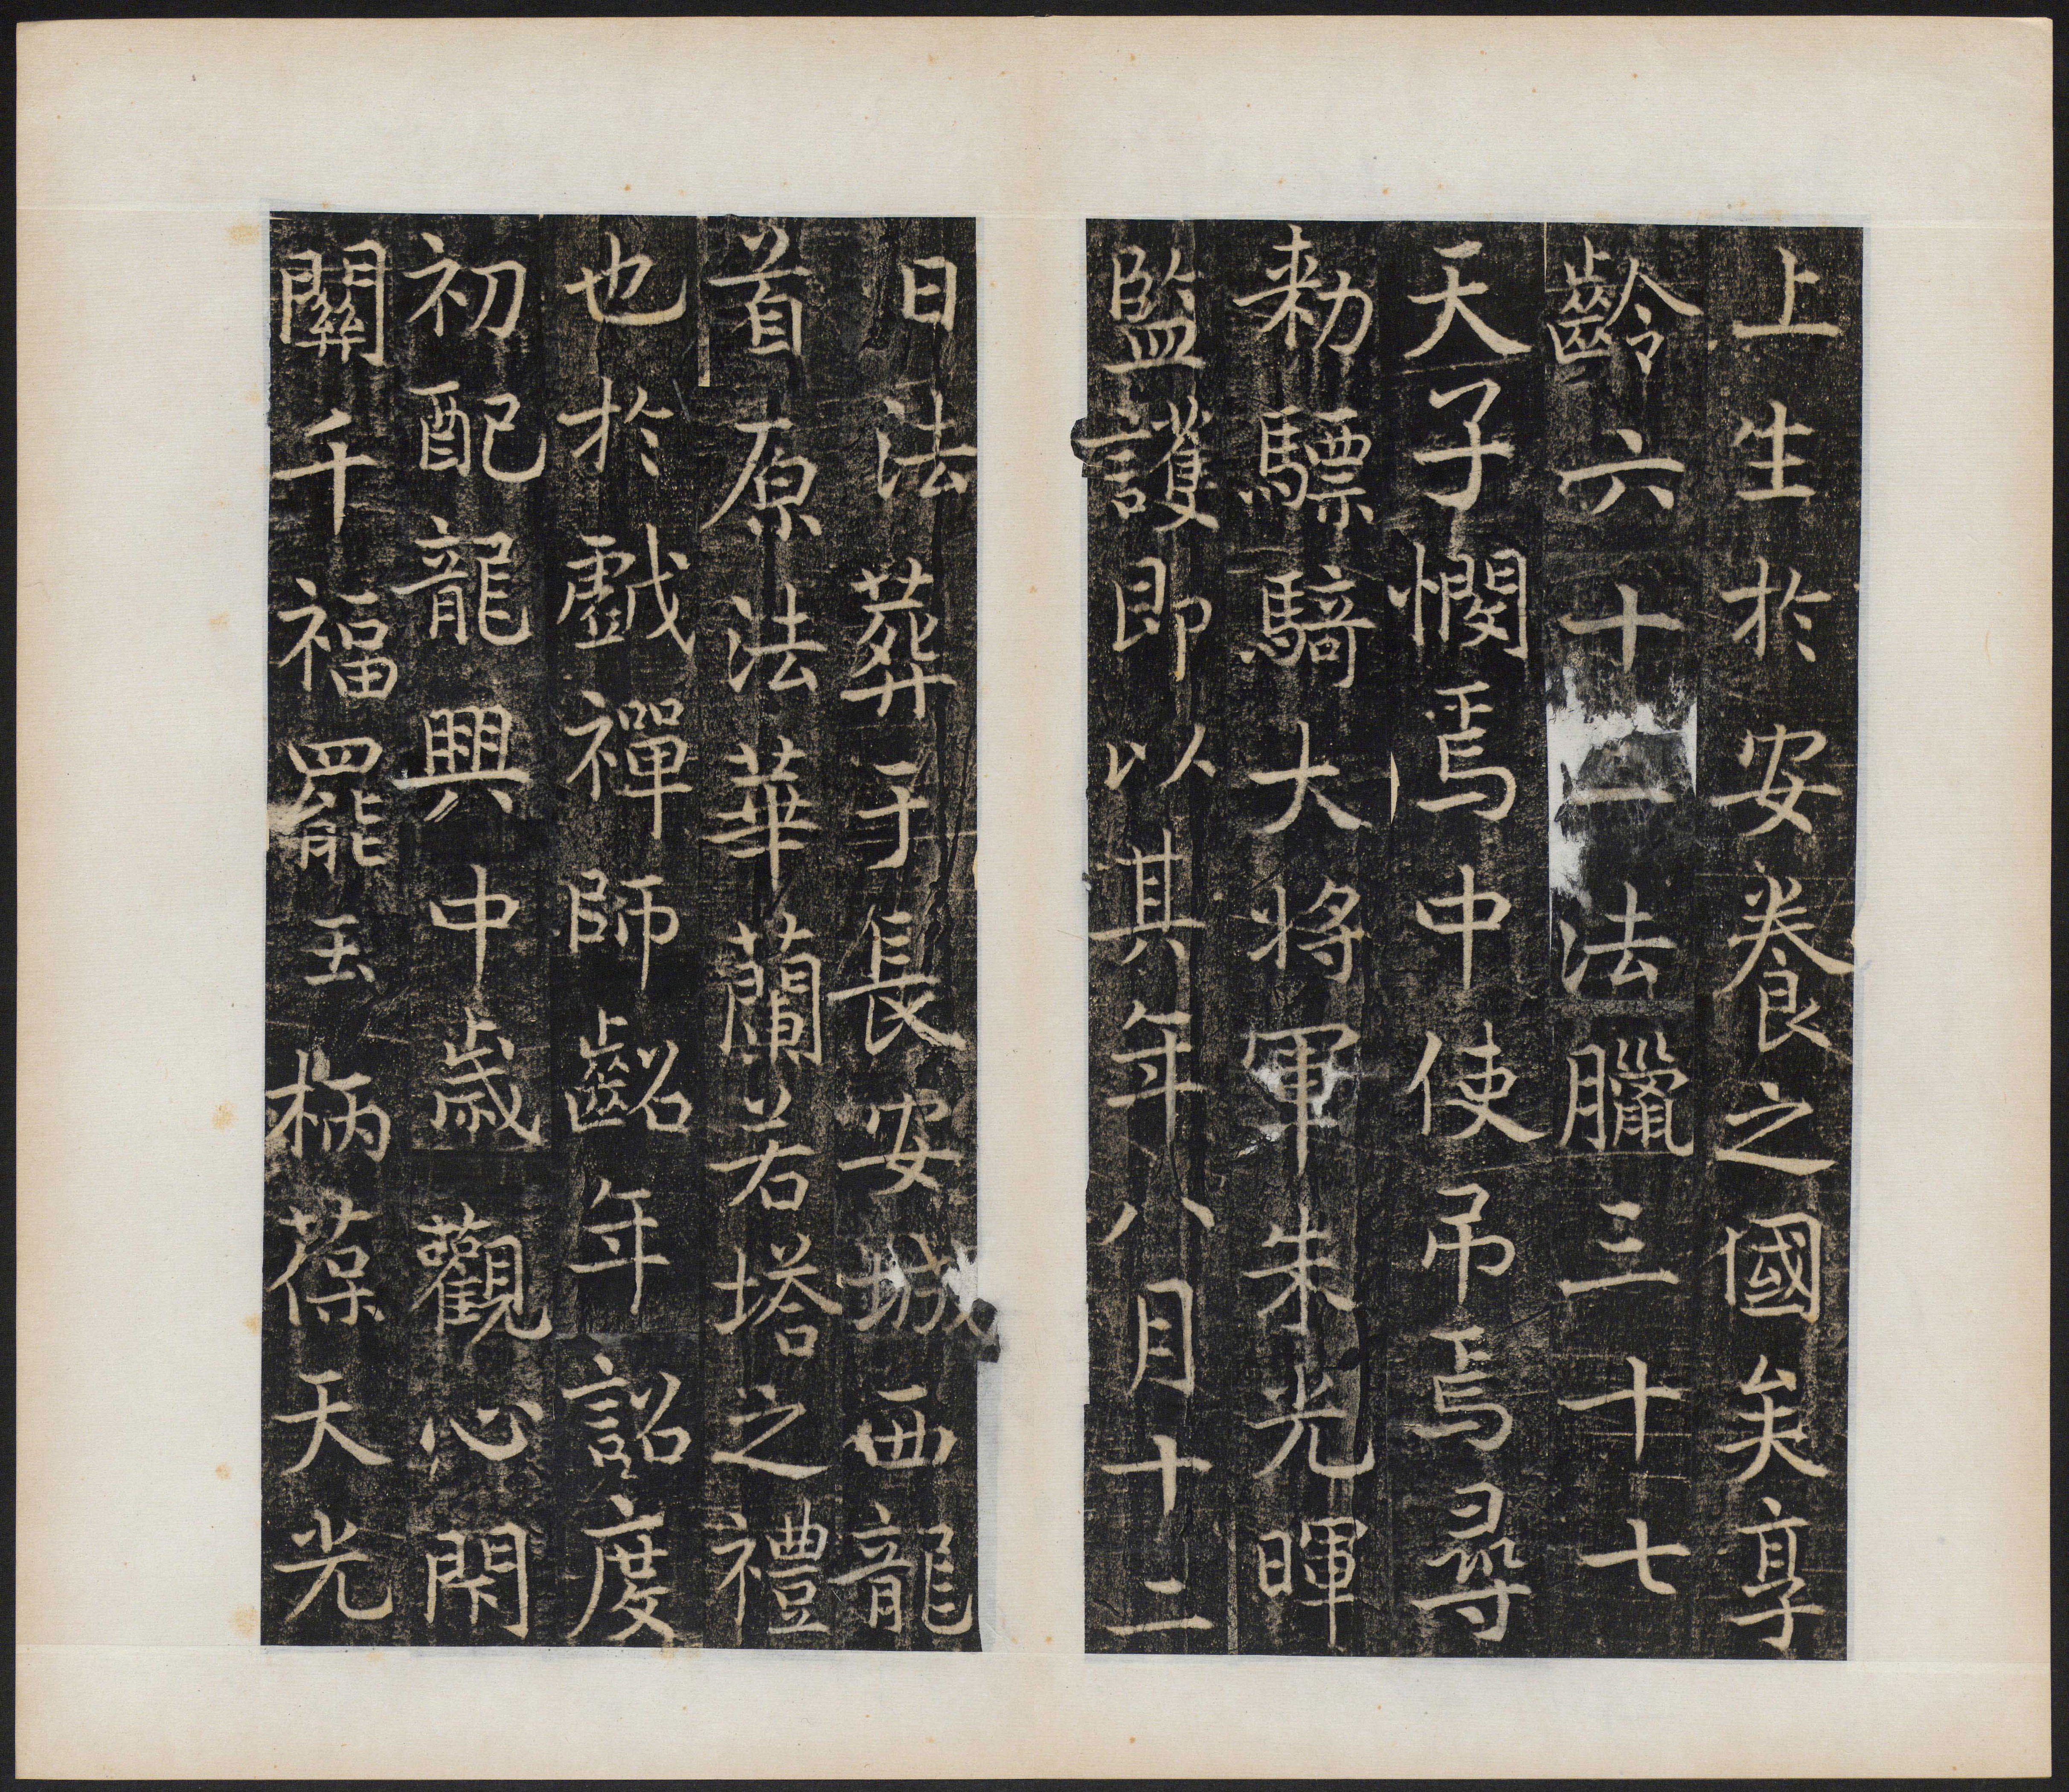 上生於安養之國矣享
齡六十二法臘三十七
天子憫焉中使吊焉尋
勑驃騎大将軍朱光暉
監護即以其年八月十二
日法葬于長安城西龍
首原法華蘭若塔之禮
也於戲禪師齠年詔度
初配龍興中歲觀心閑
關千福罷玉柄葆天光